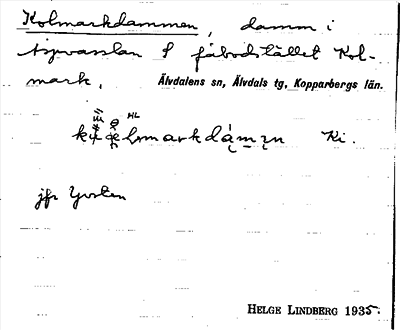 Kolmarkdammen, damm i
Åsvasslan f fäbodstället Kol-
mark. Älvdalens sn, Älvdals tg, Kopparbergs län.
HL
Ki.
jfr
HELGE LINDBERG 1935.